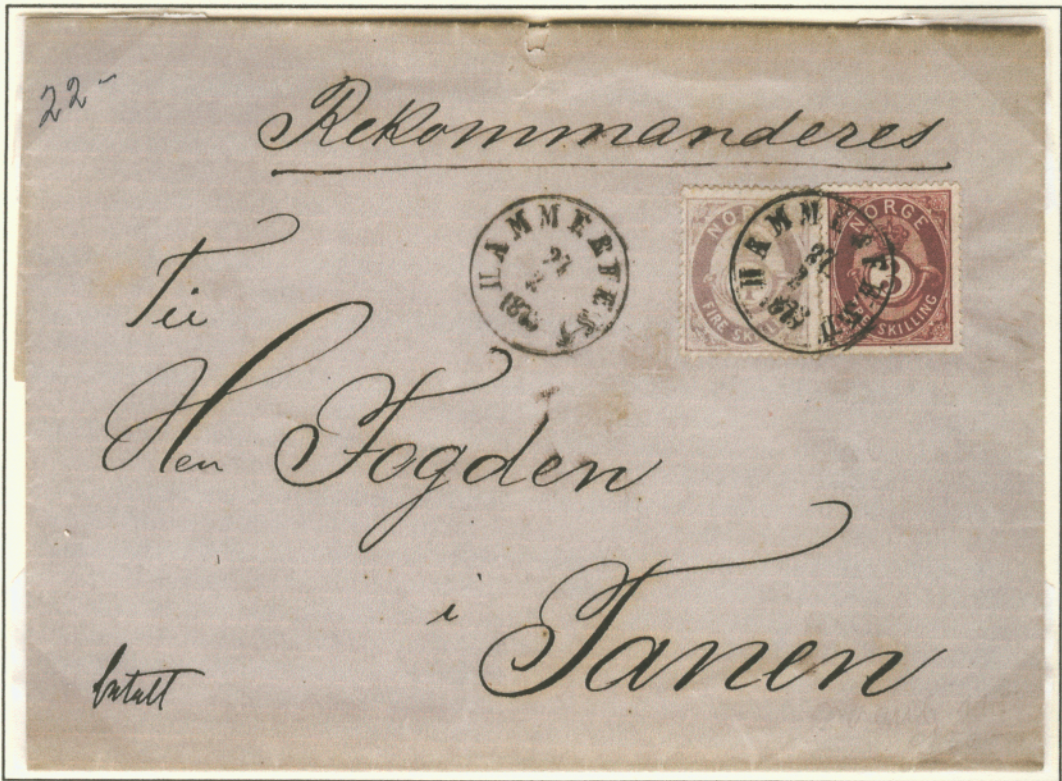 22-
Rekommanderes
HAMMERFEST
27
2
NORGE
FIRE SKILLING
HAMMERFEST
27
2
NORGE
3
SKILLING
Til
Herr Fogden
i
Tanen
betalt